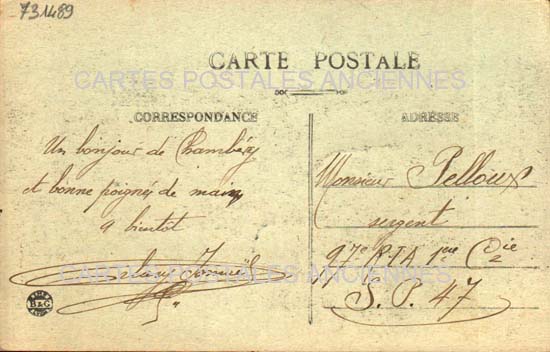 731489
CARTE POSTALE
CARTES POSTALES ANCIENNES
CORRESPONDANCE
ADRESSE
Un bonjour de Chambéry
et bonne poigné de main
a bientot
Monsieur Pelloux
sergent
97e R.I.A 1ère Cie
S. P. 47
CARTES POSTALES ANCIENNES
B&G